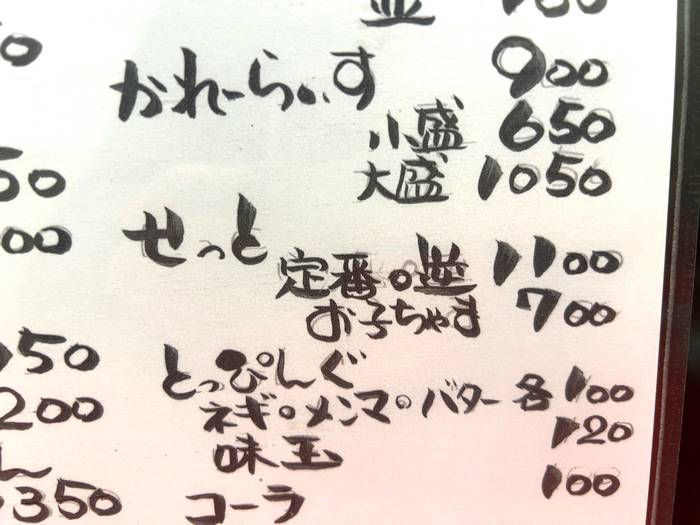 かれーらぃす 900
小盛 650
大盛 1050
せっと
定番。逆 1100
お子ちゃま 700
とっぴんぐ
ネギ。メンマ。バター 各100
味玉 120
コーラ 100
50
00
50
200
350